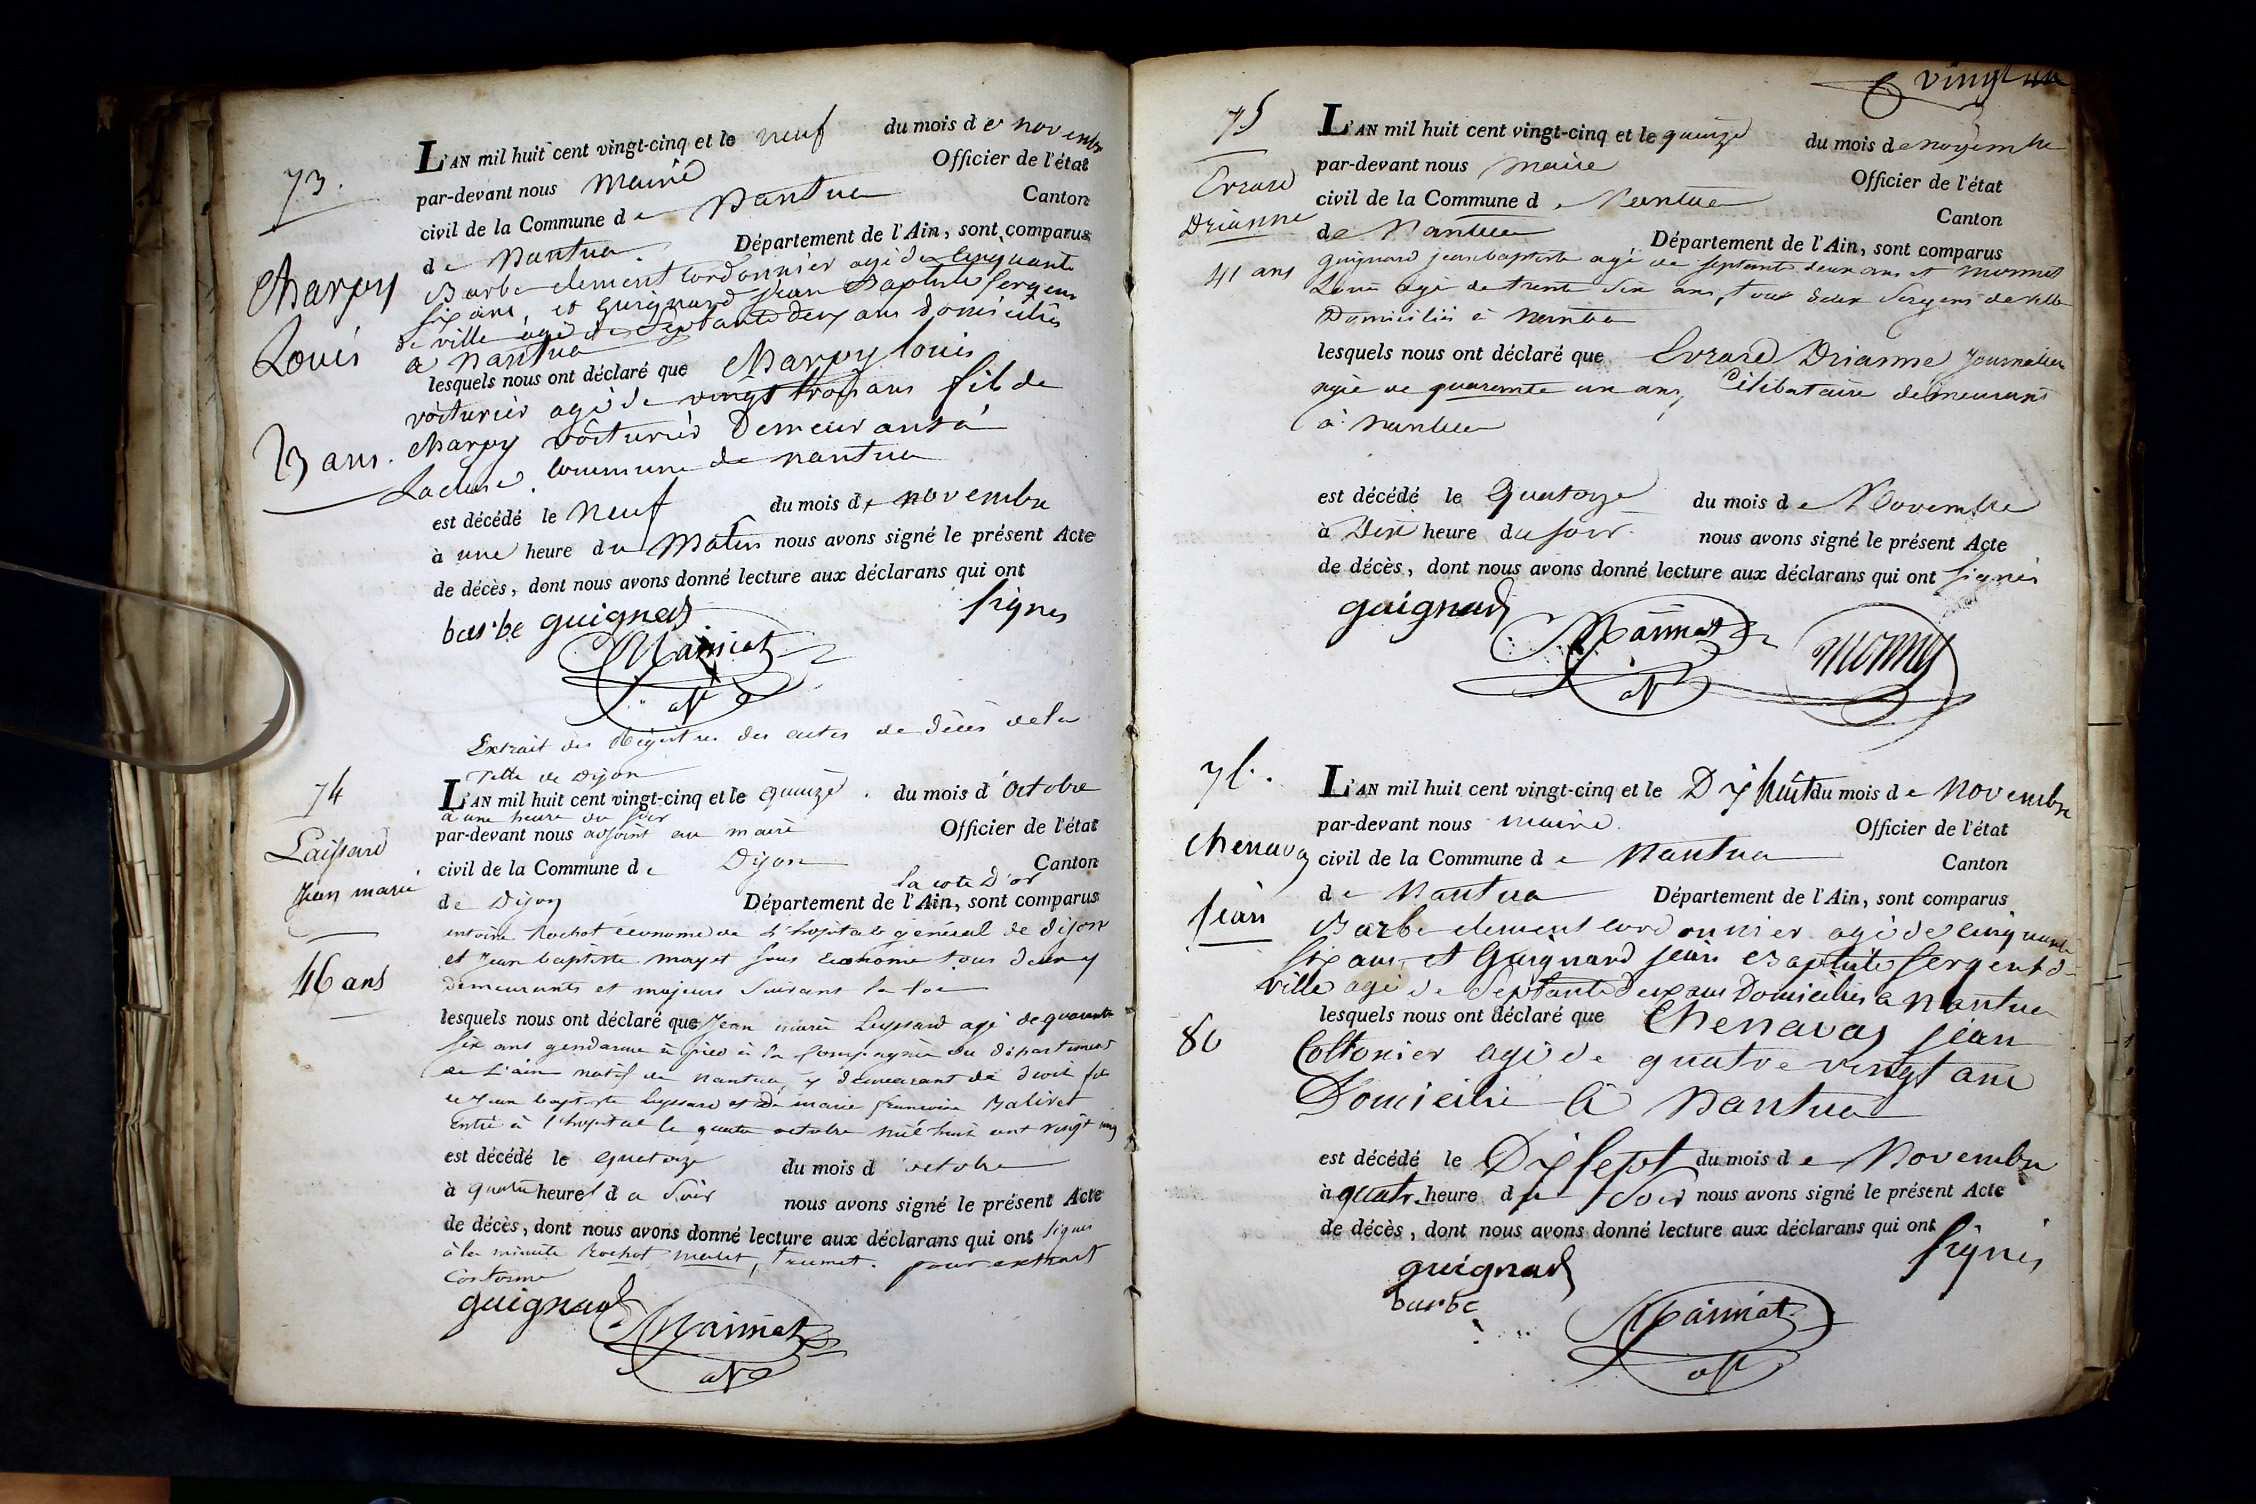 73.
Charpy
Louis
23 ans.
L'AN mil huit cent vingt-cinq et le neuf du mois de novembre
par-devant nous maire Officier de l'état
civil de la Commune de Nantua Canton
de Nantua. Département de l'Ain, sont comparus
Barbe clement Cordonnier agé de Cinquante
six ans, et guignard Jean Baptiste sergent
de ville agé de Septante deux ans domiciliés
a nantua
lesquels nous ont déclaré que Charpy louis
voiturier agé de vingt trois ans fils de
Charpy voiturier Demeurant à
Lacluse. Commune de nantua
est décédé le neuf du mois de novembre
à une heure du Matin nous avons signé le présent Acte
de décès, dont nous avons donné lecture aux déclarans qui ont
signés
barbe guignard
Mainiat
Extrait des Registres des actes de décès de la
Ville de Dijon
74
Laissard
Jean marie
46 ans
L'AN mil huit cent vingt-cinq et le quinze. du mois d'octobre
à une heure du soir
par-devant nous adjoint au maire Officier de l'état
civil de la Commune de Dijon Canton
la cote D'or
de Dijon Département de l'Ain, sont comparus
antoine Rochot économe de l'hopital général de dijon
et Jean baptiste mayet sous Econome tous deux y
demeurants et majeurs suivant la loi
lesquels nous ont déclaré que Jean marie Leyssard agé de quarante
six ans gendarme à pied à la Compagnie du département
de L'ain natif de nantua, y demeurant de droit fils
de Jean baptiste Leyssard et De marie francoise Balivet
Entré à l'hopital le quatre octobre mil huit cent vingt cinq
est décédé le quatorze du mois d octobre
à quatre heures du Soir nous avons signé le présent Acte
de décès, dont nous avons donné lecture aux déclarans qui ont signés
à la minute Rochot, mayet, trumet. pour extrait
Conforme
guignard Mainiat
vingt un
75
Evrard
Drianne
41 ans
L'AN mil huit cent vingt-cinq et le quinze du mois de novembre
par-devant nous maire Officier de l'état
civil de la Commune d. Nantua Canton
de Nantua Département de l'Ain, sont comparus
Guignard jean baptiste agé de septante deux ans et monnet
Louis agé de trente Six ans, tous deux Sergens de ville
Domiciliés à Nantua
lesquels nous ont déclaré que Evrard Drianne Journalier
agée de quarante un ans, Célibataire demeurant
à Nantua
est décédé le Quatorze du mois de Novembre
à Dix heure du soir nous avons signé le présent Acte
de décès, dont nous avons donné lecture aux déclarans qui ont signés
guignard Mainiat monnet
76.
Chenavas
Jean
80
L'AN mil huit cent vingt-cinq et le Dix huit du mois de Novembre
par-devant nous maire. Officier de l'état
civil de la Commune de Nantua Canton
de Nantua Département de l'Ain, sont comparus
Barbe clement cordonnier agé de cinquante
six ans, et Guignard jean Baptiste sergent de
ville agé de Septante deux ans Domiciliés a Nantua
lesquels nous ont déclaré que Chenavas jean
Cottonier agé de quatre vingt ans
Domicilié à Nantua
est décédé le Dix sept du mois de Novembre
à quatre heure du Soir nous avons signé le présent Acte
de décès, dont nous avons donné lecture aux déclarans qui ont
signés
guignard
barbe
Mainiat